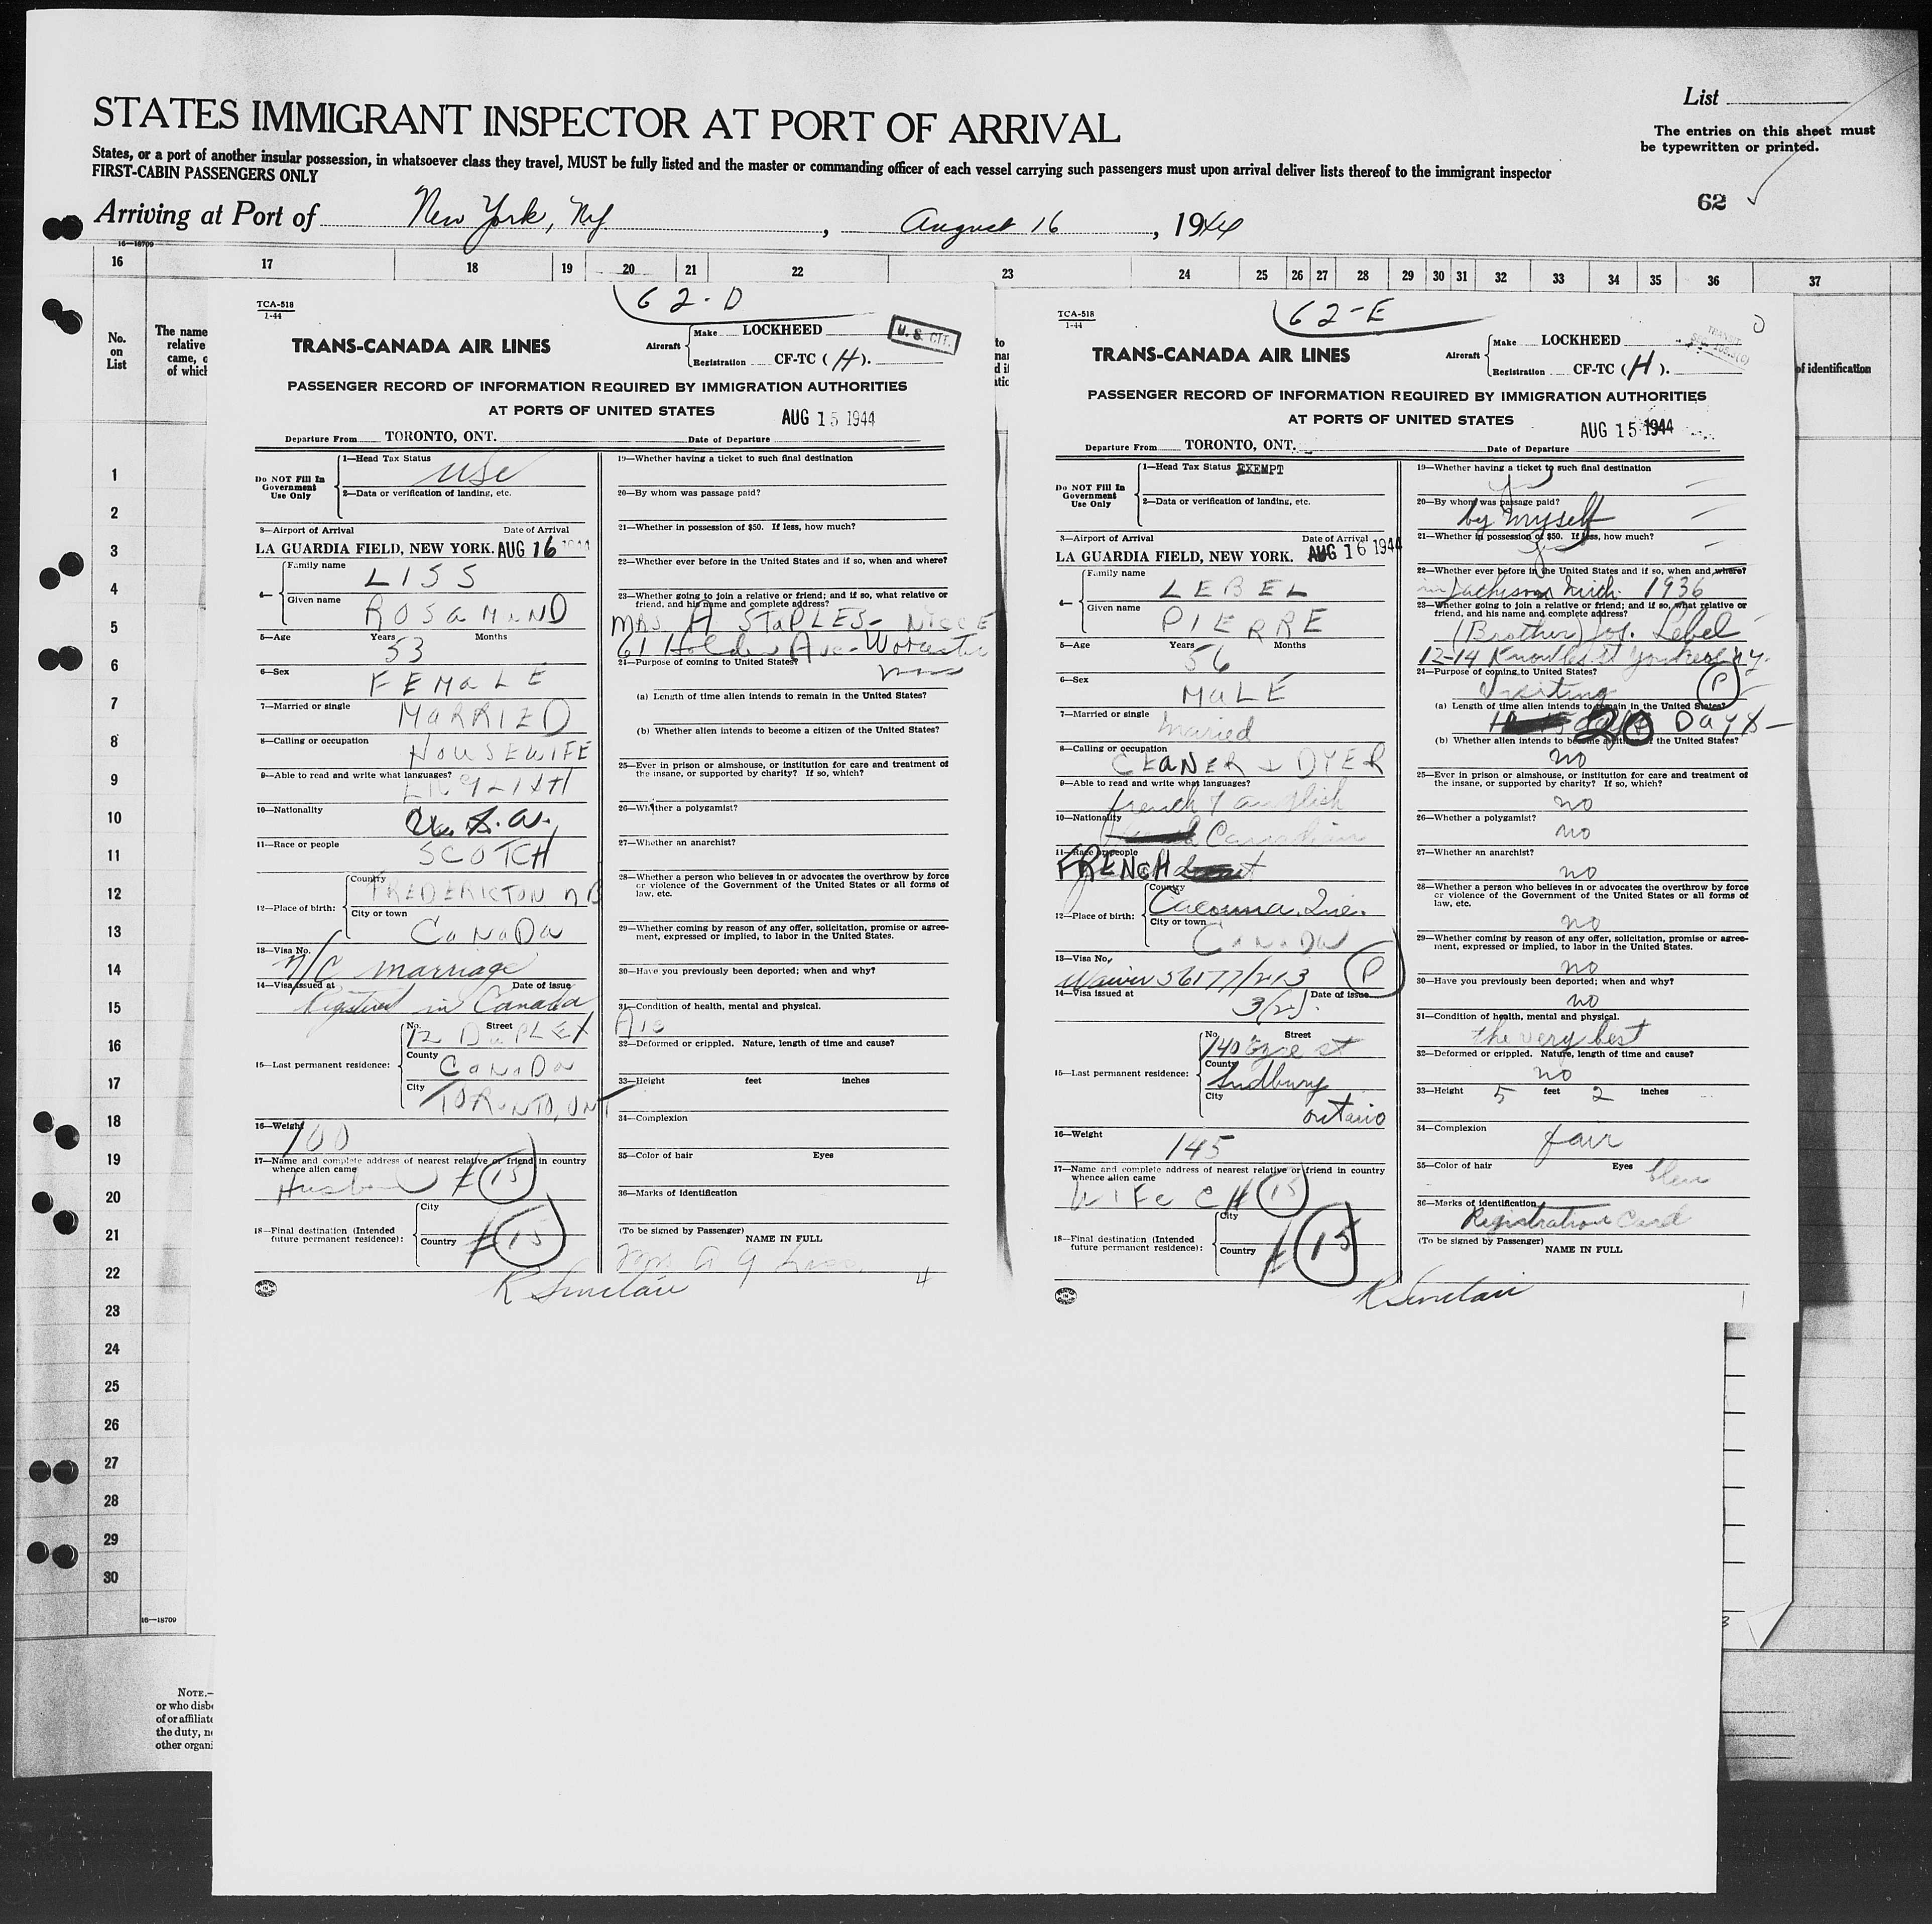 List
STATES IMMIGRANT INSPECTOR AT PORT OF ARRIVAL
The entries on this sheet must
be typewritten or printed.
States, or a port of another insular possession, in whatsoever class they travel, MUST be fully listed and the master or commanding officer of each vessel carrying such passengers must upon arrival deliver lists thereof to the immigrant inspector
FIRST-CABIN PASSENGERS ONLY
62
Arriving at Port of New York, NY. , August 16 , 1944
16—18709
16 17 18 19 20 21 22 23 24 25 26 27 28 29 30 31 32 33 34 35 36 37
No.
on
List
The name
relative
came, o
of which
of identification
1
2
3
4
5
6
7
8
9
10
11
12
13
14
15
16
17
18
19
20
21
22
23
24
25
26
27
28
29
30
16—18709
NOTE.—
or who disb
of or affiliate
the duty, ne
other organi
62-D
TCA-518
1-44
TRANS-CANADA AIR LINES
Aircraft
Make LOCKHEED
Registration CF-TC (H).
U. S. CIT.
PASSENGER RECORD OF INFORMATION REQUIRED BY IMMIGRATION AUTHORITIES
AT PORTS OF UNITED STATES
AUG 15 1944
Departure From TORONTO, ONT. Date of Departure
Do NOT Fill In
Government
Use Only
1—Head Tax Status USC
2—Data or verification of landing, etc.
3—Airport of Arrival Date of Arrival
LA GUARDIA FIELD, NEW YORK. AUG 16 1944
4—
Family name LISS
Given name ROSAMUND
5—Age Years Months
53
6—Sex FEMALE
7—Married or single MARRIED
8—Calling or occupation HOUSEWIFE
9—Able to read and write what languages? ENGLISH
10—Nationality U.S.A.
11—Race or people SCOTCH
12—Place of birth:
Country FREDERICTON NB
City or town CANADA
13—Visa No. N/C marriage
14—Visa issued at Date of issue
Registered in Canada
15—Last permanent residence:
No. Street 12 DUPLEX
County CANADA
City TORONTO, ONT
16—Weight 100
17—Name and complete address of nearest relative or friend in country
whence alien came
Husband # 15
18—Final destination (Intended
future permanent residence):
City
Country # 15
19—Whether having a ticket to such final destination
20—By whom was passage paid?
21—Whether in possession of $50. If less, how much?
22—Whether ever before in the United States and if so, when and where?
23—Whether going to join a relative or friend; and if so, what relative or
friend, and his name and complete address?
MRS A STAPLES - NIECE
61 Holden Ave - Worcester
24—Purpose of coming to United States?
(a) Length of time alien intends to remain in the United States?
(b) Whether alien intends to become a citizen of the United States?
25—Ever in prison or almshouse, or institution for care and treatment of
the insane, or supported by charity? If so, which?
26—Whether a polygamist?
27—Whether an anarchist?
28—Whether a person who believes in or advocates the overthrow by force
or violence of the Government of the United States or all forms of
law, etc.
29—Whether coming by reason of any offer, solicitation, promise or agree-
ment, expressed or implied, to labor in the United States.
30—Have you previously been deported; when and why?
31—Condition of health, mental and physical.
32—Deformed or crippled. Nature, length of time and cause?
33—Height feet inches
34—Complexion
35—Color of hair Eyes
36—Marks of identification
(To be signed by Passenger)
NAME IN FULL
Mrs A G Liss
R Sinclair
4
62-E
TCA-518
1-44
TRANS-CANADA AIR LINES
Aircraft
Make LOCKHEED
Registration CF-TC (H).
PASSENGER RECORD OF INFORMATION REQUIRED BY IMMIGRATION AUTHORITIES
AT PORTS OF UNITED STATES
AUG 15 1944
Departure From TORONTO, ONT. Date of Departure
Do NOT Fill In
Government
Use Only
1—Head Tax Status EXEMPT
2—Data or verification of landing, etc.
3—Airport of Arrival Date of Arrival
LA GUARDIA FIELD, NEW YORK. AUG 16 1944
4—
Family name LEBEL
Given name PIERRE
5—Age Years Months
56
6—Sex MALE
7—Married or single Maried
8—Calling or occupation
CLEANER & DYER
9—Able to read and write what languages?
french & english
10—Nationality Canadian
11—Race or people
FRENCH
12—Place of birth:
Country Cacouna, Que.
City or town CANADA
13—Visa No.
Waiver 56177/213 P
14—Visa issued at Date of issue
3(2).
15—Last permanent residence:
No. Street
County Sudbury
City ontario
16—Weight 145
17—Name and complete address of nearest relative or friend in country
whence alien came
WIFE # 15
18—Final destination (Intended
future permanent residence):
City
Country # 15
19—Whether having a ticket to such final destination
yes
20—By whom was passage paid?
by myself
21—Whether in possession of $50. If less, how much?
yes
22—Whether ever before in the United States and if so, when and where?
in Mich. 1936
23—Whether going to join a relative or friend; and if so, what relative or
friend, and his name and complete address?
(Brother) Jos. Lebel
12-14 Knowles St Yonkers N.Y.
24—Purpose of coming to United States?
Visiting P
(a) Length of time alien intends to remain in the United States?
20 DAYS
(b) Whether alien intends to become a citizen of the United States?
no
25—Ever in prison or almshouse, or institution for care and treatment of
the insane, or supported by charity? If so, which?
no
26—Whether a polygamist?
no
27—Whether an anarchist?
no
28—Whether a person who believes in or advocates the overthrow by force
or violence of the Government of the United States or all forms of
law, etc.
no
29—Whether coming by reason of any offer, solicitation, promise or agree-
ment, expressed or implied, to labor in the United States.
no
30—Have you previously been deported; when and why?
no
31—Condition of health, mental and physical.
the very best
32—Deformed or crippled. Nature, length of time and cause?
no
33—Height 5 feet 2 inches
34—Complexion
fair
35—Color of hair Eyes
36—Marks of identification
Registration Card
(To be signed by Passenger)
NAME IN FULL
R Sinclair